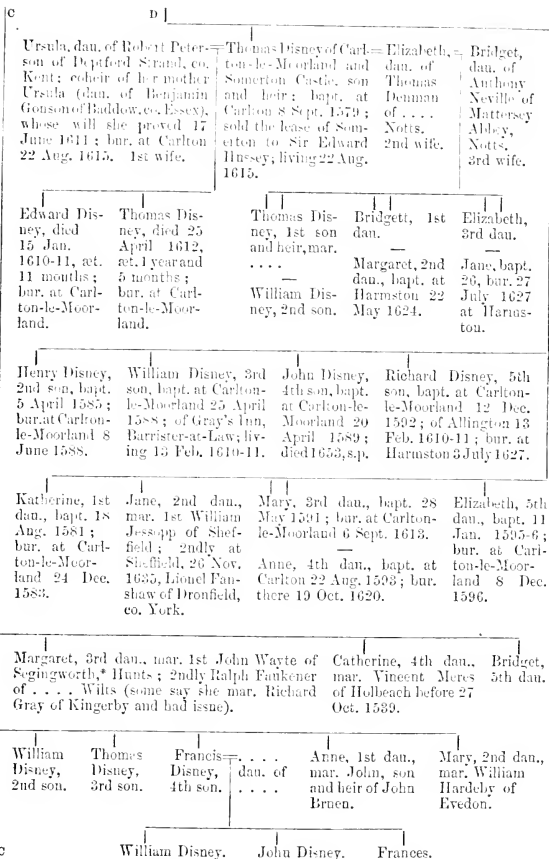 C D
Ursula, dau. of Robert Peter-
son of Deptford Strand, co.
Kent; coheir of her mother
Ursula (dau. of Benjamin
Gonson of Baddow, co. Essex),
whose will she proved 17
June 1611; bur. at Carlton
22 Aug. 1615. 1st wife.
=Thomas Disney of Carl-
ton-le-Moorland and
Somerton Castle, son
and heir; bapt. at
Carlton 8 Sept. 1579;
sold the lease of Som-
erton to Sir Edward
Hussey; living 22 Aug.
1615.
=Elizabeth,
dau. of
Thomas
Denman
of . . . .
Notts.
2nd wife.
= Bridget,
dau. of
Anthony
Neville of
Mattersey
Abbey,
Notts.
3rd wife.
Edward Dis-
ney, died
15 Jan.
1610-11, æt.
11 months;
bur. at Carl-
ton-le-Moor-
land.
Thomas Dis-
ney, died 25
April 1612,
æt. 1 year and
5 months;
bur. at Carl-
ton-le-Moor-
land.
Thomas Dis-
ney, 1st son
and heir, mar.
. . . .
—
William Dis-
ney, 2nd son.
Bridgett, 1st
dau.
—
Margaret, 2nd
dau., bapt. at
Harmston 22
May 1624.
Elizabeth,
3rd dau.
—
Jane, bapt.
26, bur. 27
July 1627
at Harms-
ton.
Henry Disney,
2nd son, bapt.
5 April 1585;
bur. at Carlton-
le-Moorland 8
June 1588.
William Disney, 3rd
son, bapt. at Carlton-
le-Moorland 25 April
1588; of Gray's Inn,
Barrister-at-Law; liv-
ing 13 Feb. 1610-11.
John Disney,
4th son, bapt.
at Carlton-le-
Moorland 20
April 1589;
died 1653, s.p.
Richard Disney, 5th
son, bapt. at Carlton-
le-Moorland 12 Dec.
1592; of Allington 13
Feb. 1610-11; bur. at
Harmston 3 July 1627.
Katherine, 1st
dau., bapt. 18
Aug. 1581;
bur. at Carl-
ton-le-Moor-
land 24 Dec.
1583.
Jane, 2nd dau.,
mar. 1st William
Jessopp of Shef-
field; 2ndly at
Sheffield, 26 Nov.
1635, Lionel Fan-
shaw of Dronfield,
co. York.
Mary, 3rd dau., bapt. 28
May 1591; bur. at Carlton-
le-Moorland 6 Sept. 1613.
—
Anne, 4th dau., bapt. at
Carlton 22 Aug. 1593; bur.
there 19 Oct. 1620.
Elizabeth, 5th
dau., bapt. 11
Jan. 1595-6;
bur. at Carl-
ton-le-Moor-
land 8 Dec.
1596.
Margaret, 3rd dau., mar. 1st John Wayte of
Segingworth,* Hunts; 2ndly Ralph Faukener
of . . . . Wilts (some say she mar. Richard
Gray of Kingerby and had issue).
Catherine, 4th dau.,
mar. Vincent Meres
of Holbeach before 27
Oct. 1539.
Bridget,
5th dau.
William
Disney,
2nd son.
Thomas
Disney,
3rd son.
Francis=
Disney,
4th son.
. . . .
dau. of
. . . .
Anne, 1st dau.,
mar. John, son
and heir of John
Bruen.
Mary, 2nd dau.,
mar. William
Hardeby of
Evedon.
C William Disney. John Disney. Frances.